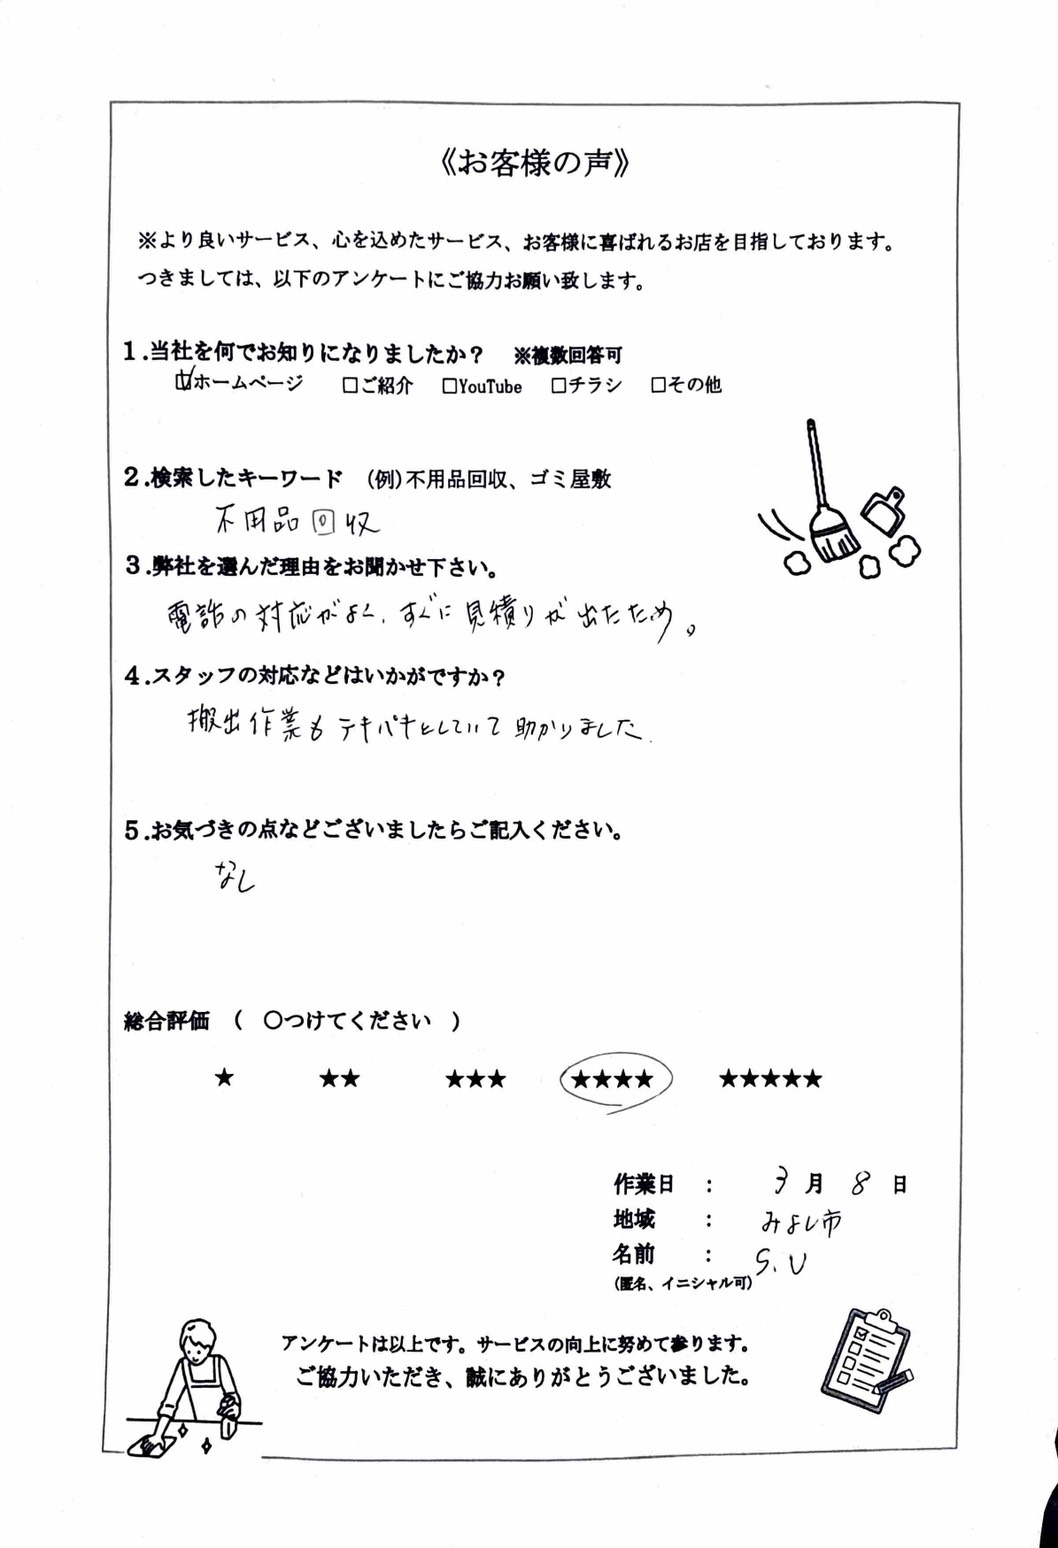 《お客様の声》
※より良いサービス、心を込めたサービス、お客様に喜ばれるお店を目指しております。
つきましては、以下のアンケートにご協力お願い致します。
1.当社を何でお知りになりましたか？　※複数回答可
☑ホームページ　□ご紹介　□YouTube　□チラシ　□その他
2.検索したキーワード　(例)不用品回収、ゴミ屋敷
不用品回収
3.弊社を選んだ理由をお聞かせ下さい。
電話の対応がよく、すぐに見積りが出たため。
4.スタッフの対応などはいかがですか？
搬出作業もテキパキとしていて助かりました.
5.お気づきの点などございましたらご記入ください。
なし
総合評価　(　〇つけてください　)
★　★★　★★★　★★★★　★★★★★
作業日　：　3月　8日
地域　：　みよし市
名前　：　S.U
(匿名、イニシャル可)
アンケートは以上です。サービスの向上に努めて参ります。
ご協力いただき、誠にありがとうございました。